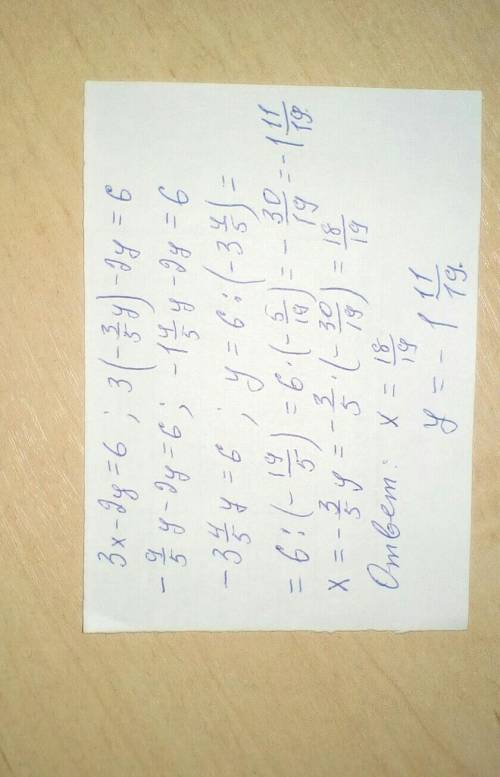 3x-2y=6; 3(-3/5y)-2y=6
-9/5y-2y=6; -1 4/5y-2y=6
-3 4/5y=6; y=6:(-3 4/5)=
=6:(-19/5)=6·(-5/19)=-30/19=-1 11/19.
x=-3/5y=-3/5·(-30/19)=18/19
Ответ: x=18/19
y=-1 11/19.